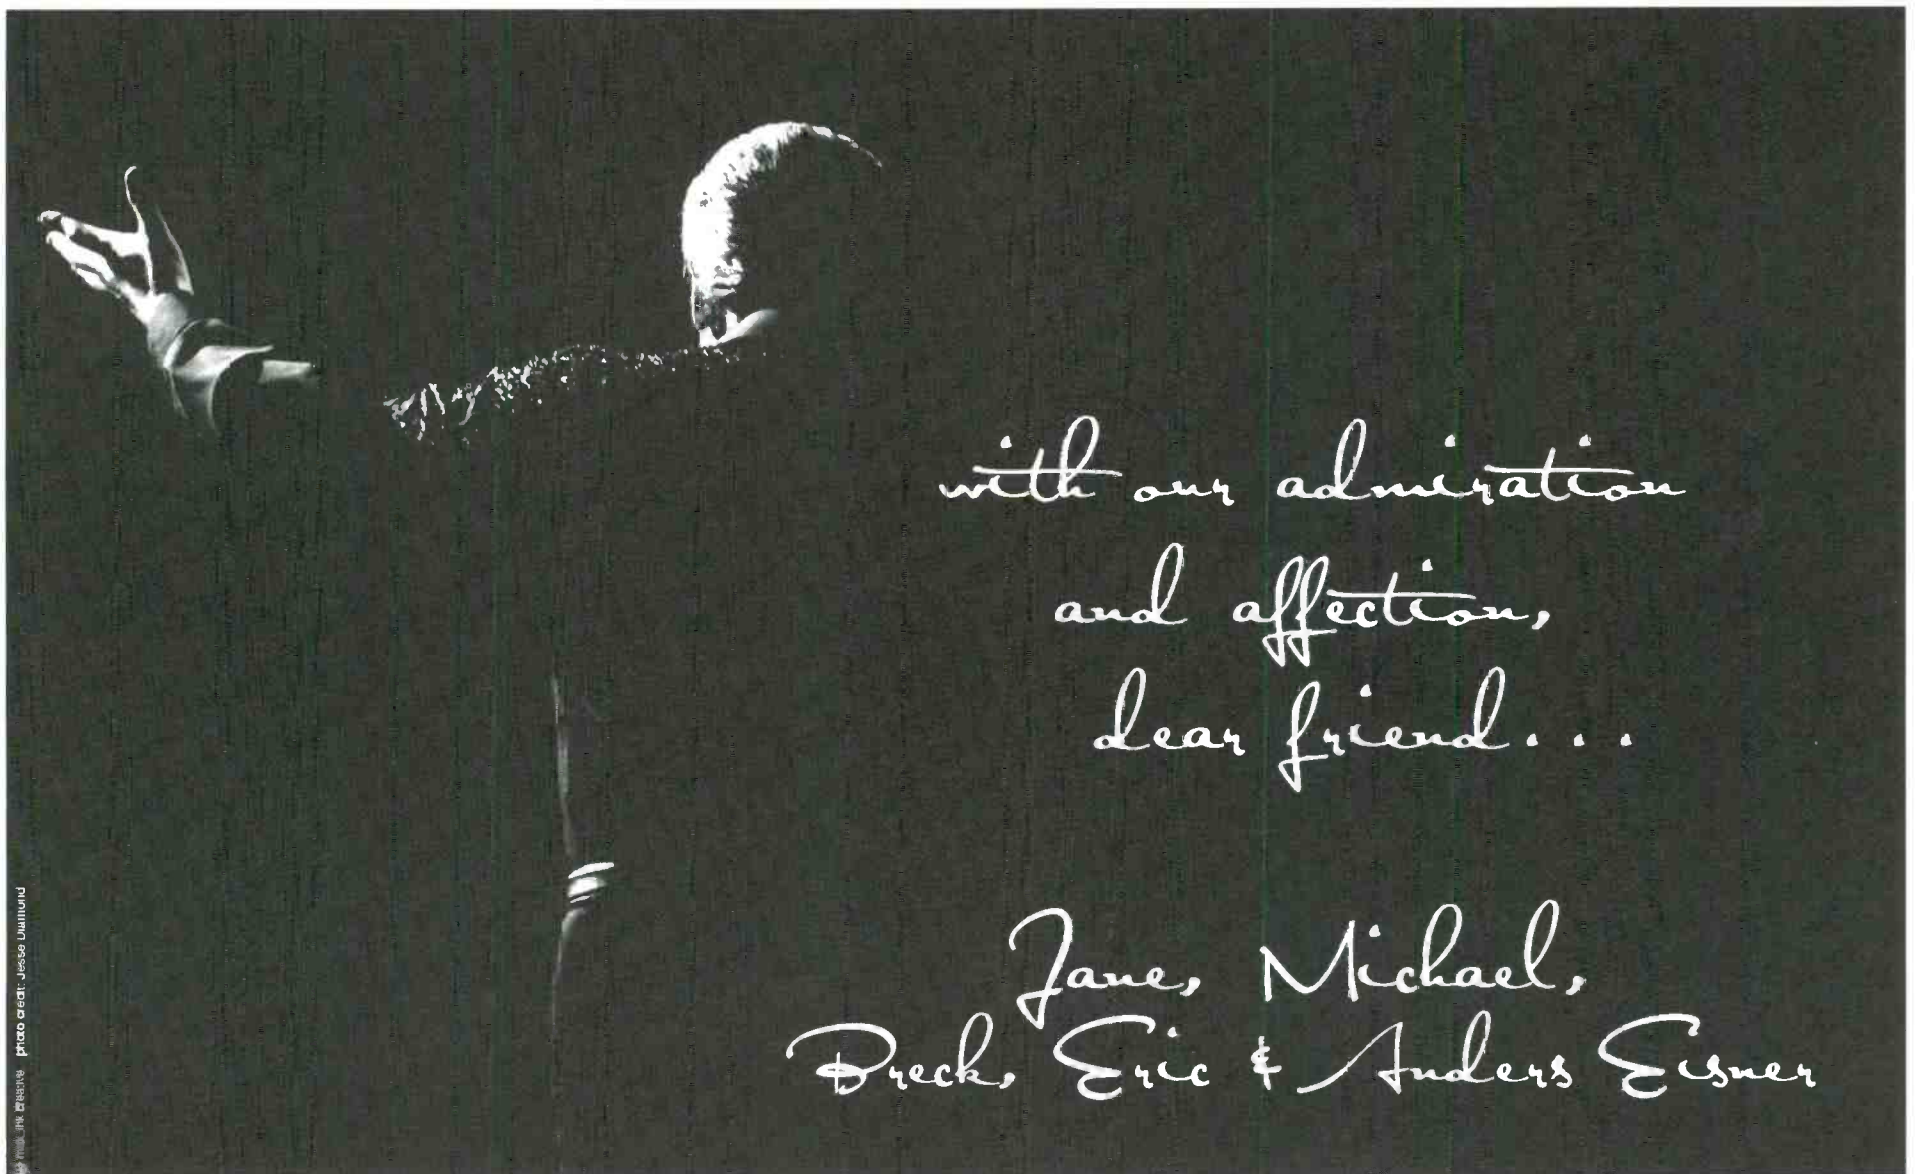 with our admiration
and affection,
dear friend...
Jane, Michael,
Breck, Eric & Anders Eisner
photo credit: Jesse Diamond